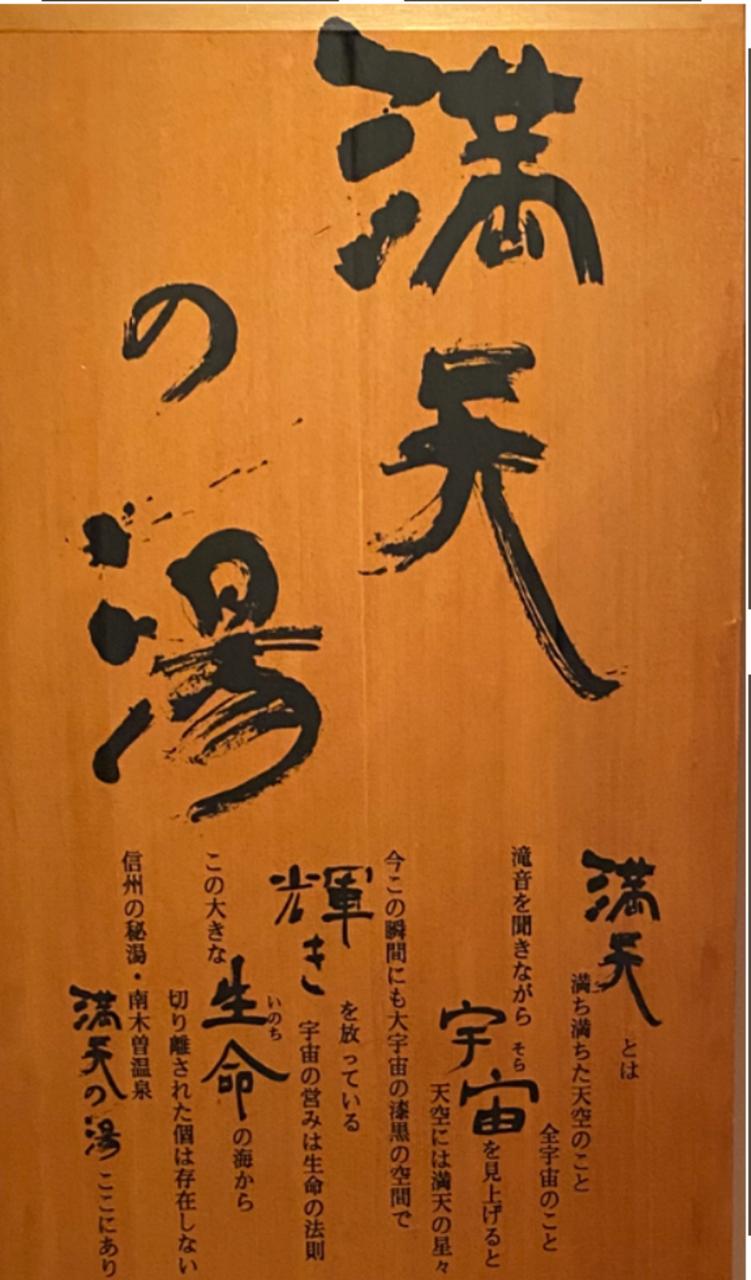 満天
の湯
満天とは
満ち満ちた天空のこと
全宇宙のこと
滝音を聞きながら
宇宙を見上げると
そら
天空には満天の星々
今この瞬間にも大宇宙の漆黒の空間で
輝きを放っている
宇宙の営みは生命の法則
この大きな生命の海から
いのち
切り離された個は存在しない
信州の秘湯・南木曽温泉
満天の湯ここにあり